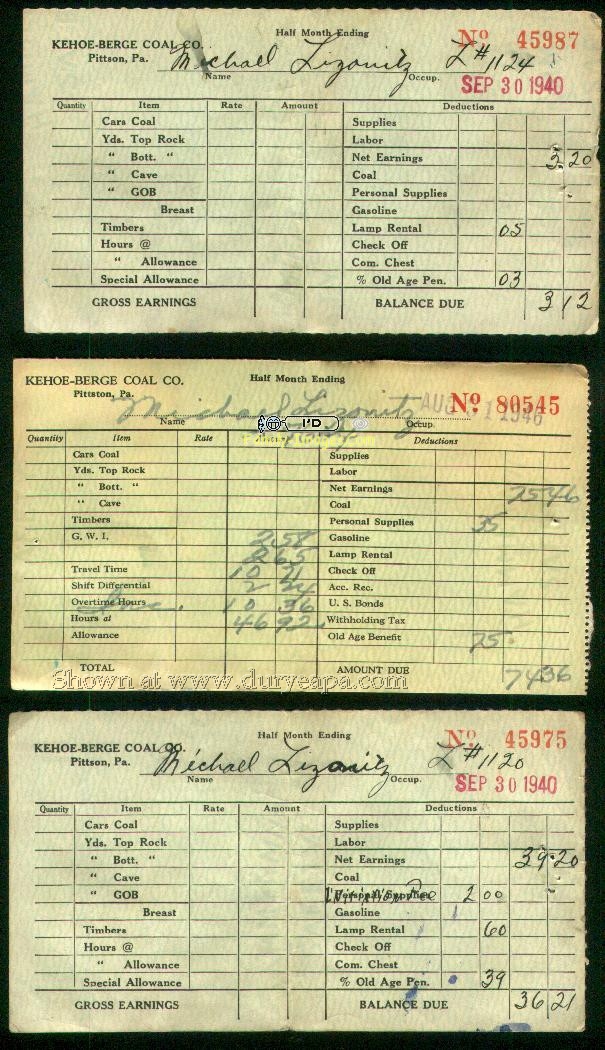 Half Month Ending
Nº 45987
KEHOE-BERGE COAL CO.
Pittson, Pa.
Michael Lizonitz L#1124
Name Occup.
SEP 30 1940
Quantity Item Rate Amount Deductions
Cars Coal Supplies
Yds. Top Rock Labor
" Bott. " Net Earnings 3 20
" Cave Coal
" GOB Personal Supplies
Breast Gasoline
Timbers Lamp Rental 05
Hours @ Check Off
" Allowance Com. Chest
Special Allowance % Old Age Pen. 03
GROSS EARNINGS BALANCE DUE 3 12
KEHOE-BERGE COAL CO. Half Month Ending
Pittston, Pa.
Nº 80545
Michael Lizonitz AUG 1 1946
Name Occup.
I'D
Quantity Item Rate Deductions
Cars Coal Supplies
Yds. Top Rock Labor
" Bott. " Net Earnings 75 46
" Cave Coal
Timbers Personal Supplies 35
G. W. I. 2 58 Gasoline
2 65 Lamp Rental
Travel Time 10 21 Check Off
Shift Differential 2 24 Acc. Rec.
Overtime Hours 10 36 U. S. Bonds
Hours at 46 92 Withholding Tax
Allowance Old Age Benefit 75
TOTAL AMOUNT DUE 74 36
Shown at www.durveapa.com
Half Month Ending
Nº 45975
KEHOE-BERGE COAL CO.
Pittson, Pa.
Michael Lizonitz L#1120
Name Occup.
SEP 30 1940
Quantity Item Rate Amount Deductions
Cars Coal Supplies
Yds. Top Rock Labor
" Bott. " Net Earnings 39 20
" Cave Coal
" GOB Initiation Fee Personal Supplies 2 00
Breast Gasoline
Timbers Lamp Rental 60
Hours @ Check Off
" Allowance Com. Chest
Special Allowance % Old Age Pen. 39
GROSS EARNINGS BALANCE DUE 36 21